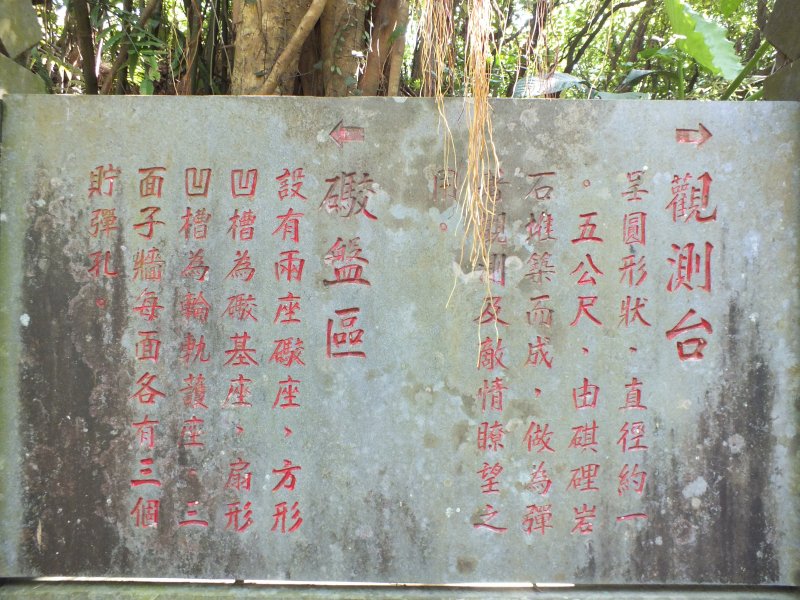 →
觀測台
呈圓形狀、直徑約一
。五公尺、由岩
石堆築而成，做為彈
著觀測及敵情瞭望之
用。
←
礮盤區
設有兩座礮座，方形
凹槽為礮基座、扇形
凹槽為輪軌護座、三
面子牆每面各有三個
貯彈孔。